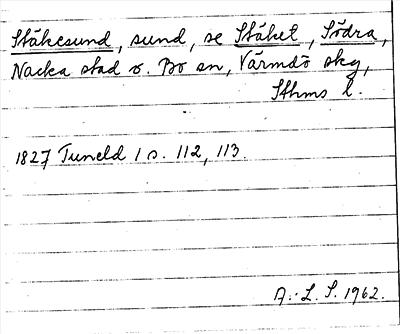 Stäkesund, sund, se Stäket, Södra,
Nacka stad o. Boo sn, Värmdö skg,
Sthms l.
1827 Tuneld 1 s. 112, 113.
A. L. S. 1962.